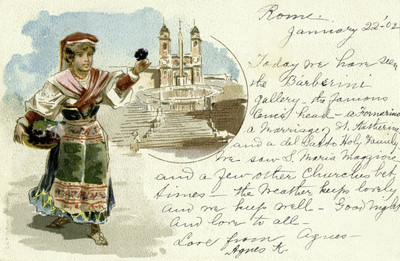 Rome.
January 22 '02
Today we have seen
the Barberini
gallery - its famous
Cenci head - a Fornarina
a Marriage of St. Katherine
and a del Sarto Holy Family
We saw S. Maria Maggiore
and a few other Churches bet
times - the weather keeps lovely
and we keep well - Good night
and love to all -
Love from Agnes -
Agnes K.